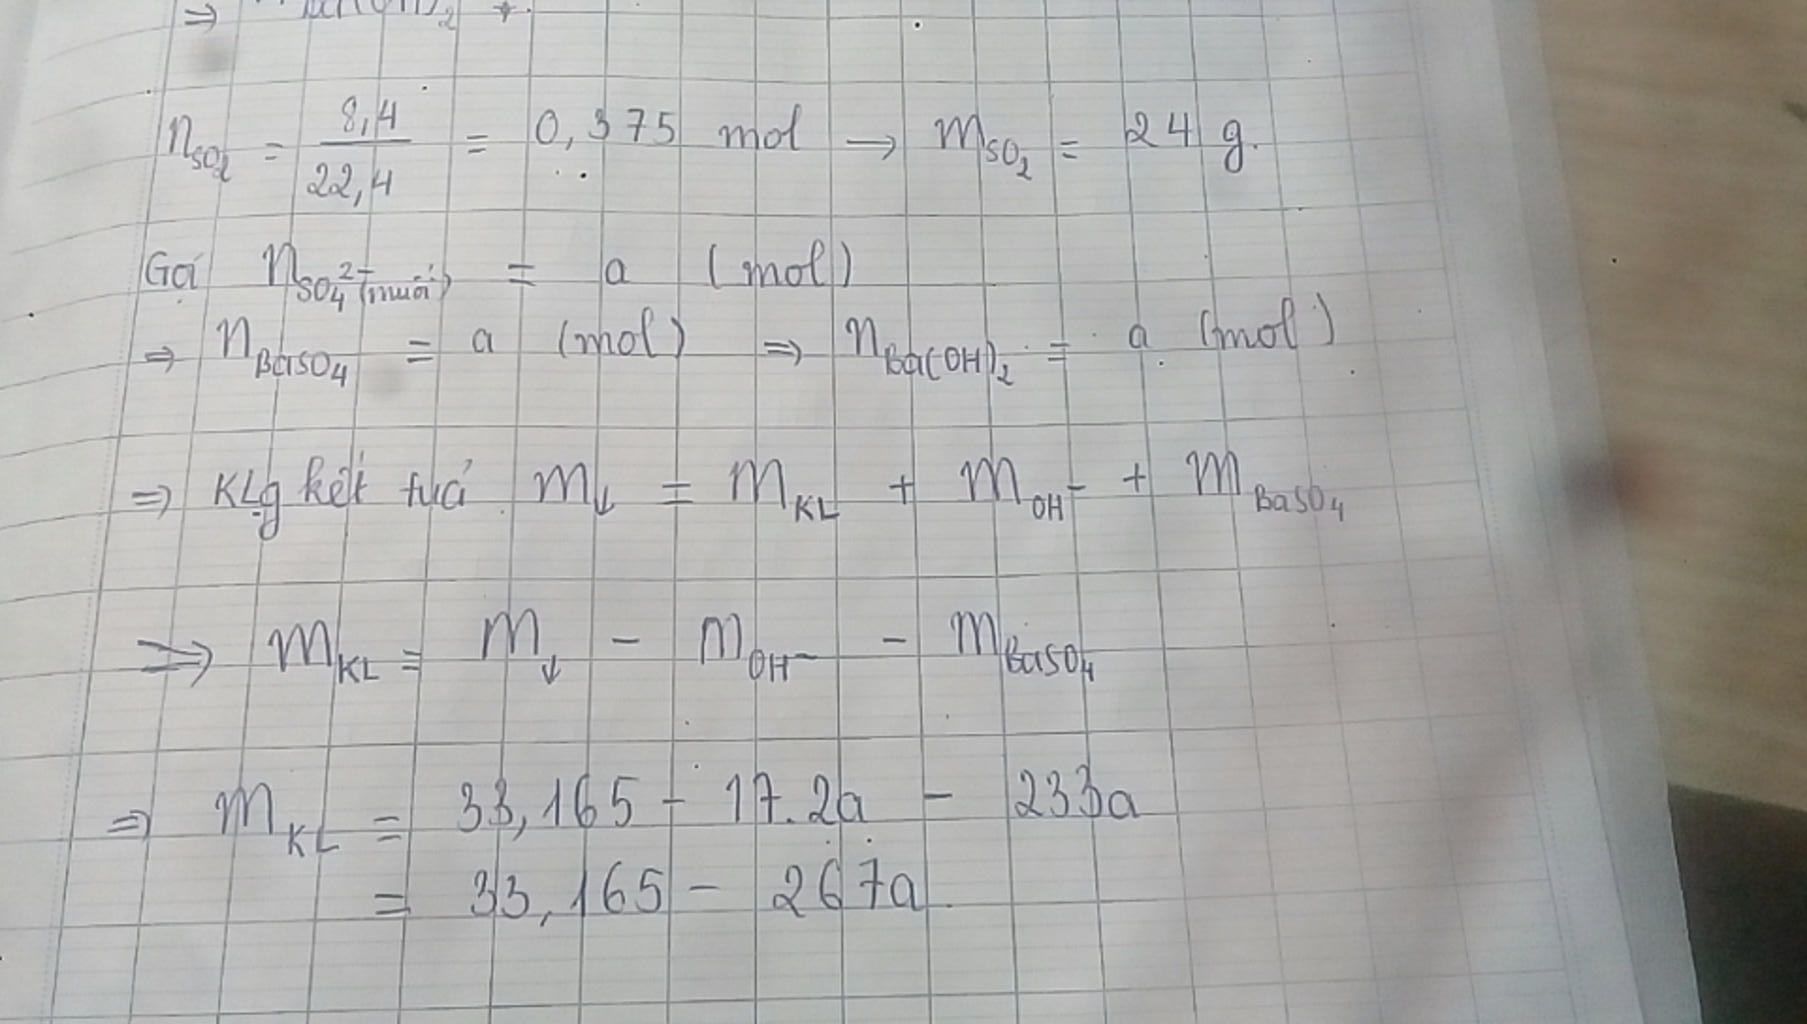 ⇒ Ba(OH)₂ +
n_SO₂ = 8,4/22,4 = 0,375 mol → m_SO₂ = 24 g.
Gọi n_SO₄²⁻(muối) = a (mol)
⇒ n_BaSO₄ = a (mol) ⇒ n_Ba(OH)₂ = a (mol)
⇒ KLg kết tủa m↓ = m_KL + m_OH⁻ + m_BaSO₄
⇒ m_KL = m↓ - m_OH⁻ - m_BaSO₄
⇒ m_KL = 33,165 - 17.2a - 233a
= 33,165 - 267a